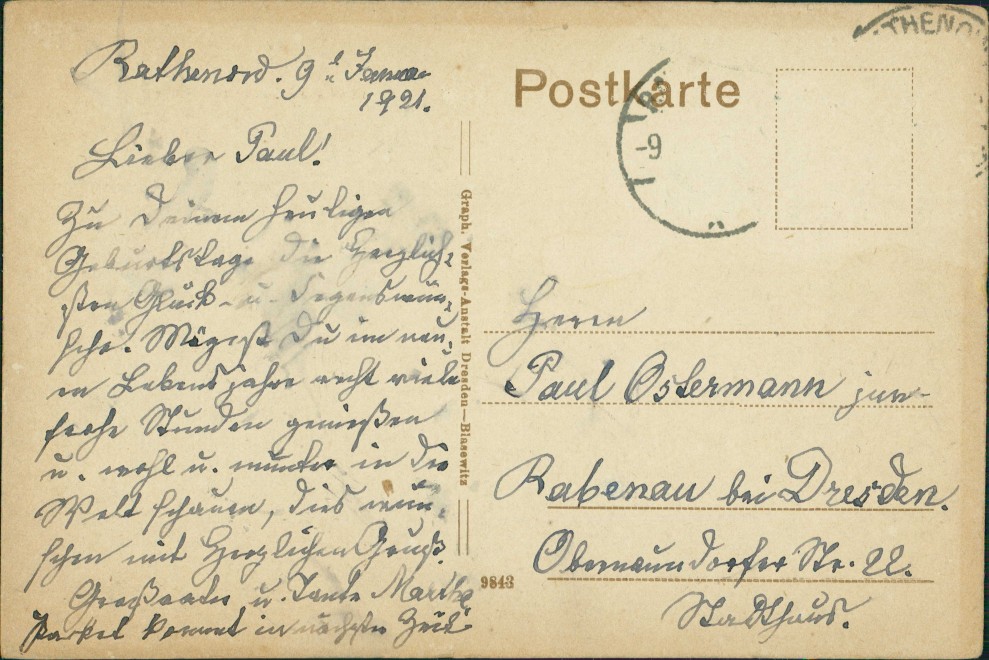 Rathenow. 9. Januar
1921.
Lieber Paul!
Zu Deinem heutigen
Geburtstage die Herzlich-
sten Glück- u. Segenswün-
sche. Mögest Du im neu-
en Lebensjahre recht viele
frohe Stunden genießen
u. wohl u. munter in die
Welt schauen, dies wün-
schen mit Herzlichen Gruß.
Großvater u. Tante Martha
Packet kommt in nächster Zeit
Graph. Verlags-Anstalt Dresden—Blasewitz
9843
Postkarte
THENO
-9
Herrn
Paul Ostermann jun.
Rabenau bei Dresden.
Obernaundorfer Str. 22.
Stadthaus.